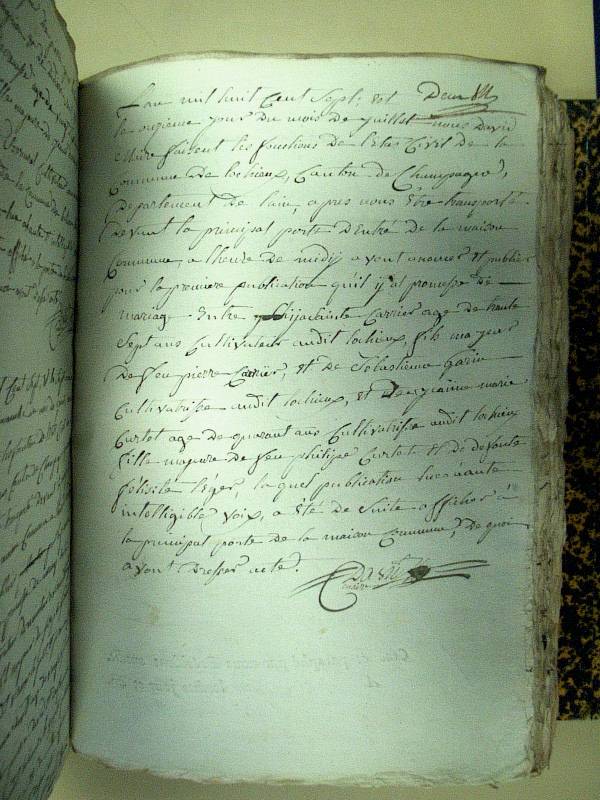 L'an mil huit Cent Sept, et
le onzieme jour du mois de juillet nous David
Maire faisant les fonctions de l'Etat Civil de la
Commune de lochieux, Canton de Champagne,
departement de l'ain, apres nous être transporté
devant la principal porte d'Entré de la maison
Commune, a l'heure de midij avont anoncer et publier
pour la premiere publication qu'il ij at promesse de
mariage Entre hijacinte Carrier age de trante
Sept ans Cultivateur audit lochieux, fils majeur
de feu pierre Carrier, et de Sebastienne Garin
Cultivatrisse audit lochieux, et jeanne marie
Curtet age de quarant ans Cultivatrisse audit lochieux
fille majeure de feu philipe Curtet et de devente
felisité leger, la quel publication lue à aute
intelligible voix, a été de Suite afficher a
la principal porte de la maison Commune, de quoi
avont dresser acte.